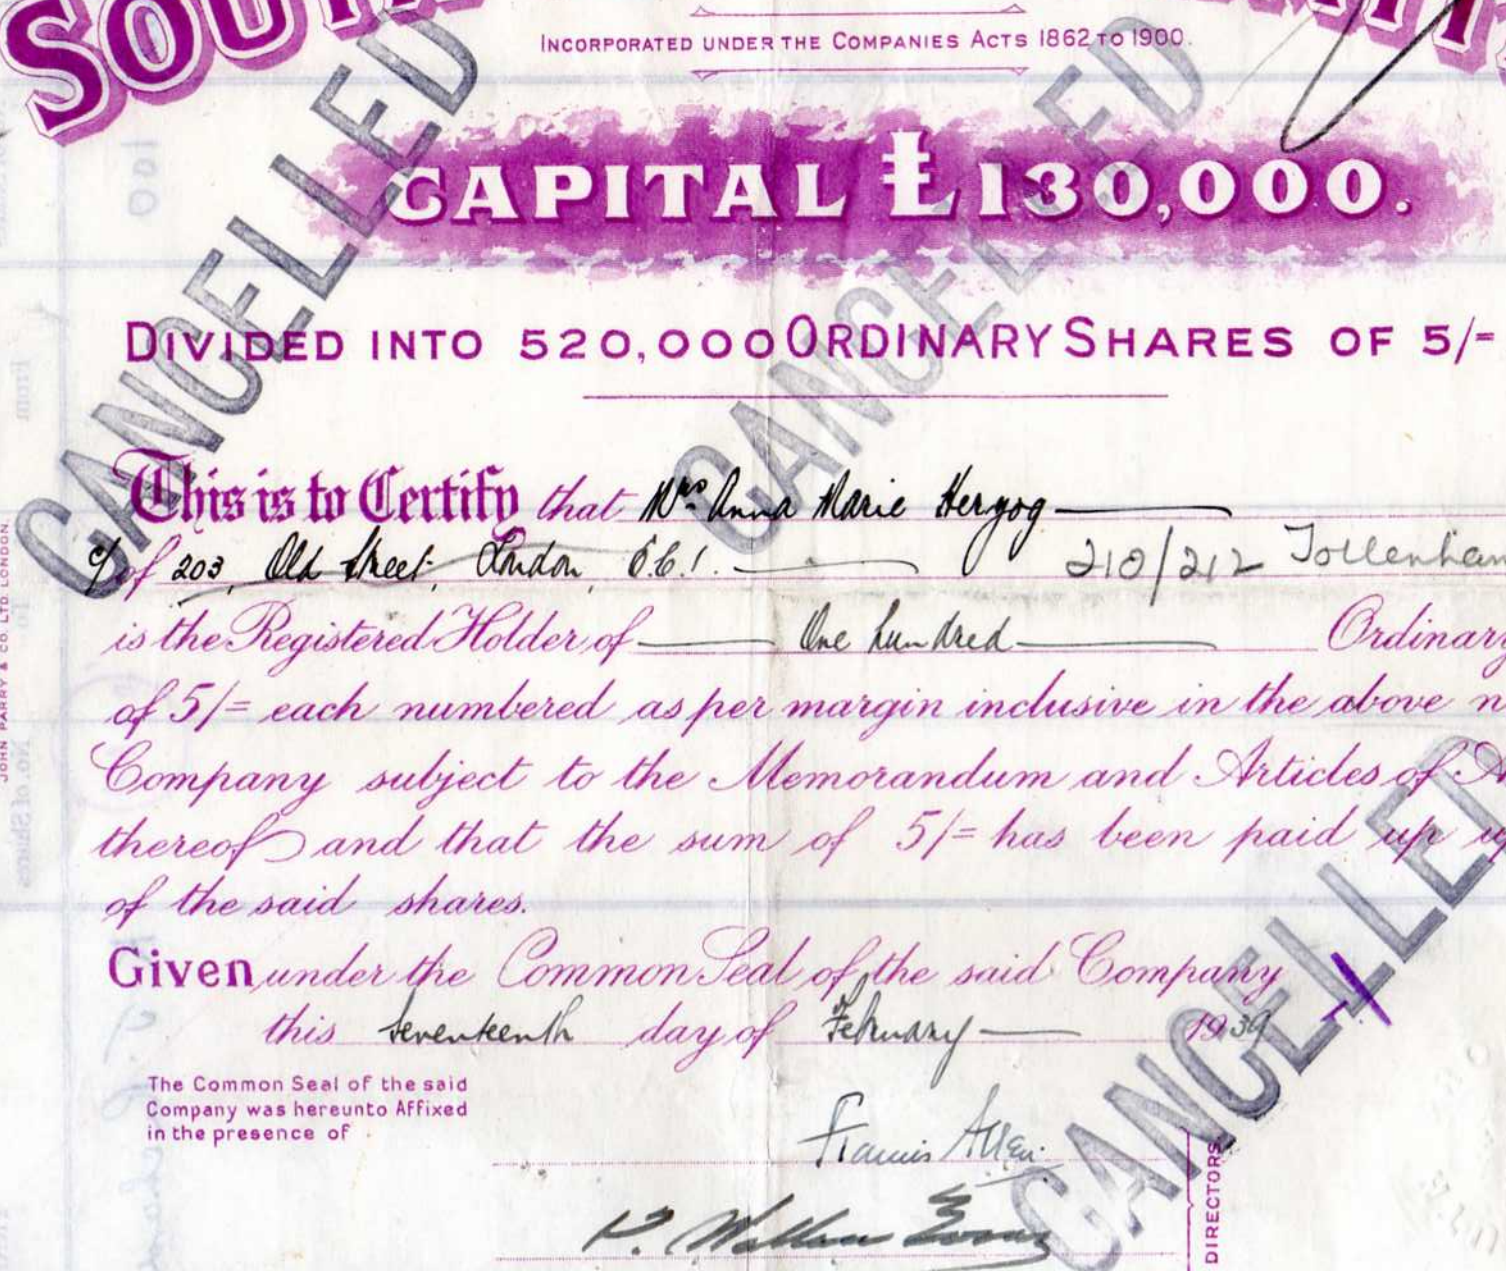 SOUTH
INCORPORATED UNDER THE COMPANIES ACTS 1862 TO 1900.
CAPITAL £130,000.
DIVIDED INTO 520,000 ORDINARY SHARES OF 5/=
This is to Certify that Mrs Anna Marie Herzog
c/o of 203, Old Street, London, E.C.1. 210/212 Tottenham
is the Registered Holder of One hundred Ordinary
of 5/= each numbered as per margin inclusive in the above n
Company subject to the Memorandum and Articles of A
thereof and that the sum of 5/= has been paid up up
of the said shares.
Given under the Common Seal of the said Company
this seventeenth day of February 1939
The Common Seal of the said
Company was hereunto Affixed
in the presence of
Francis Allen.
DIRECTORS
CANCELLED
CANCELLED
CANCELLED
JOHN PARRY & CO. LTD. LONDON.
100
From
To
No. of Shares